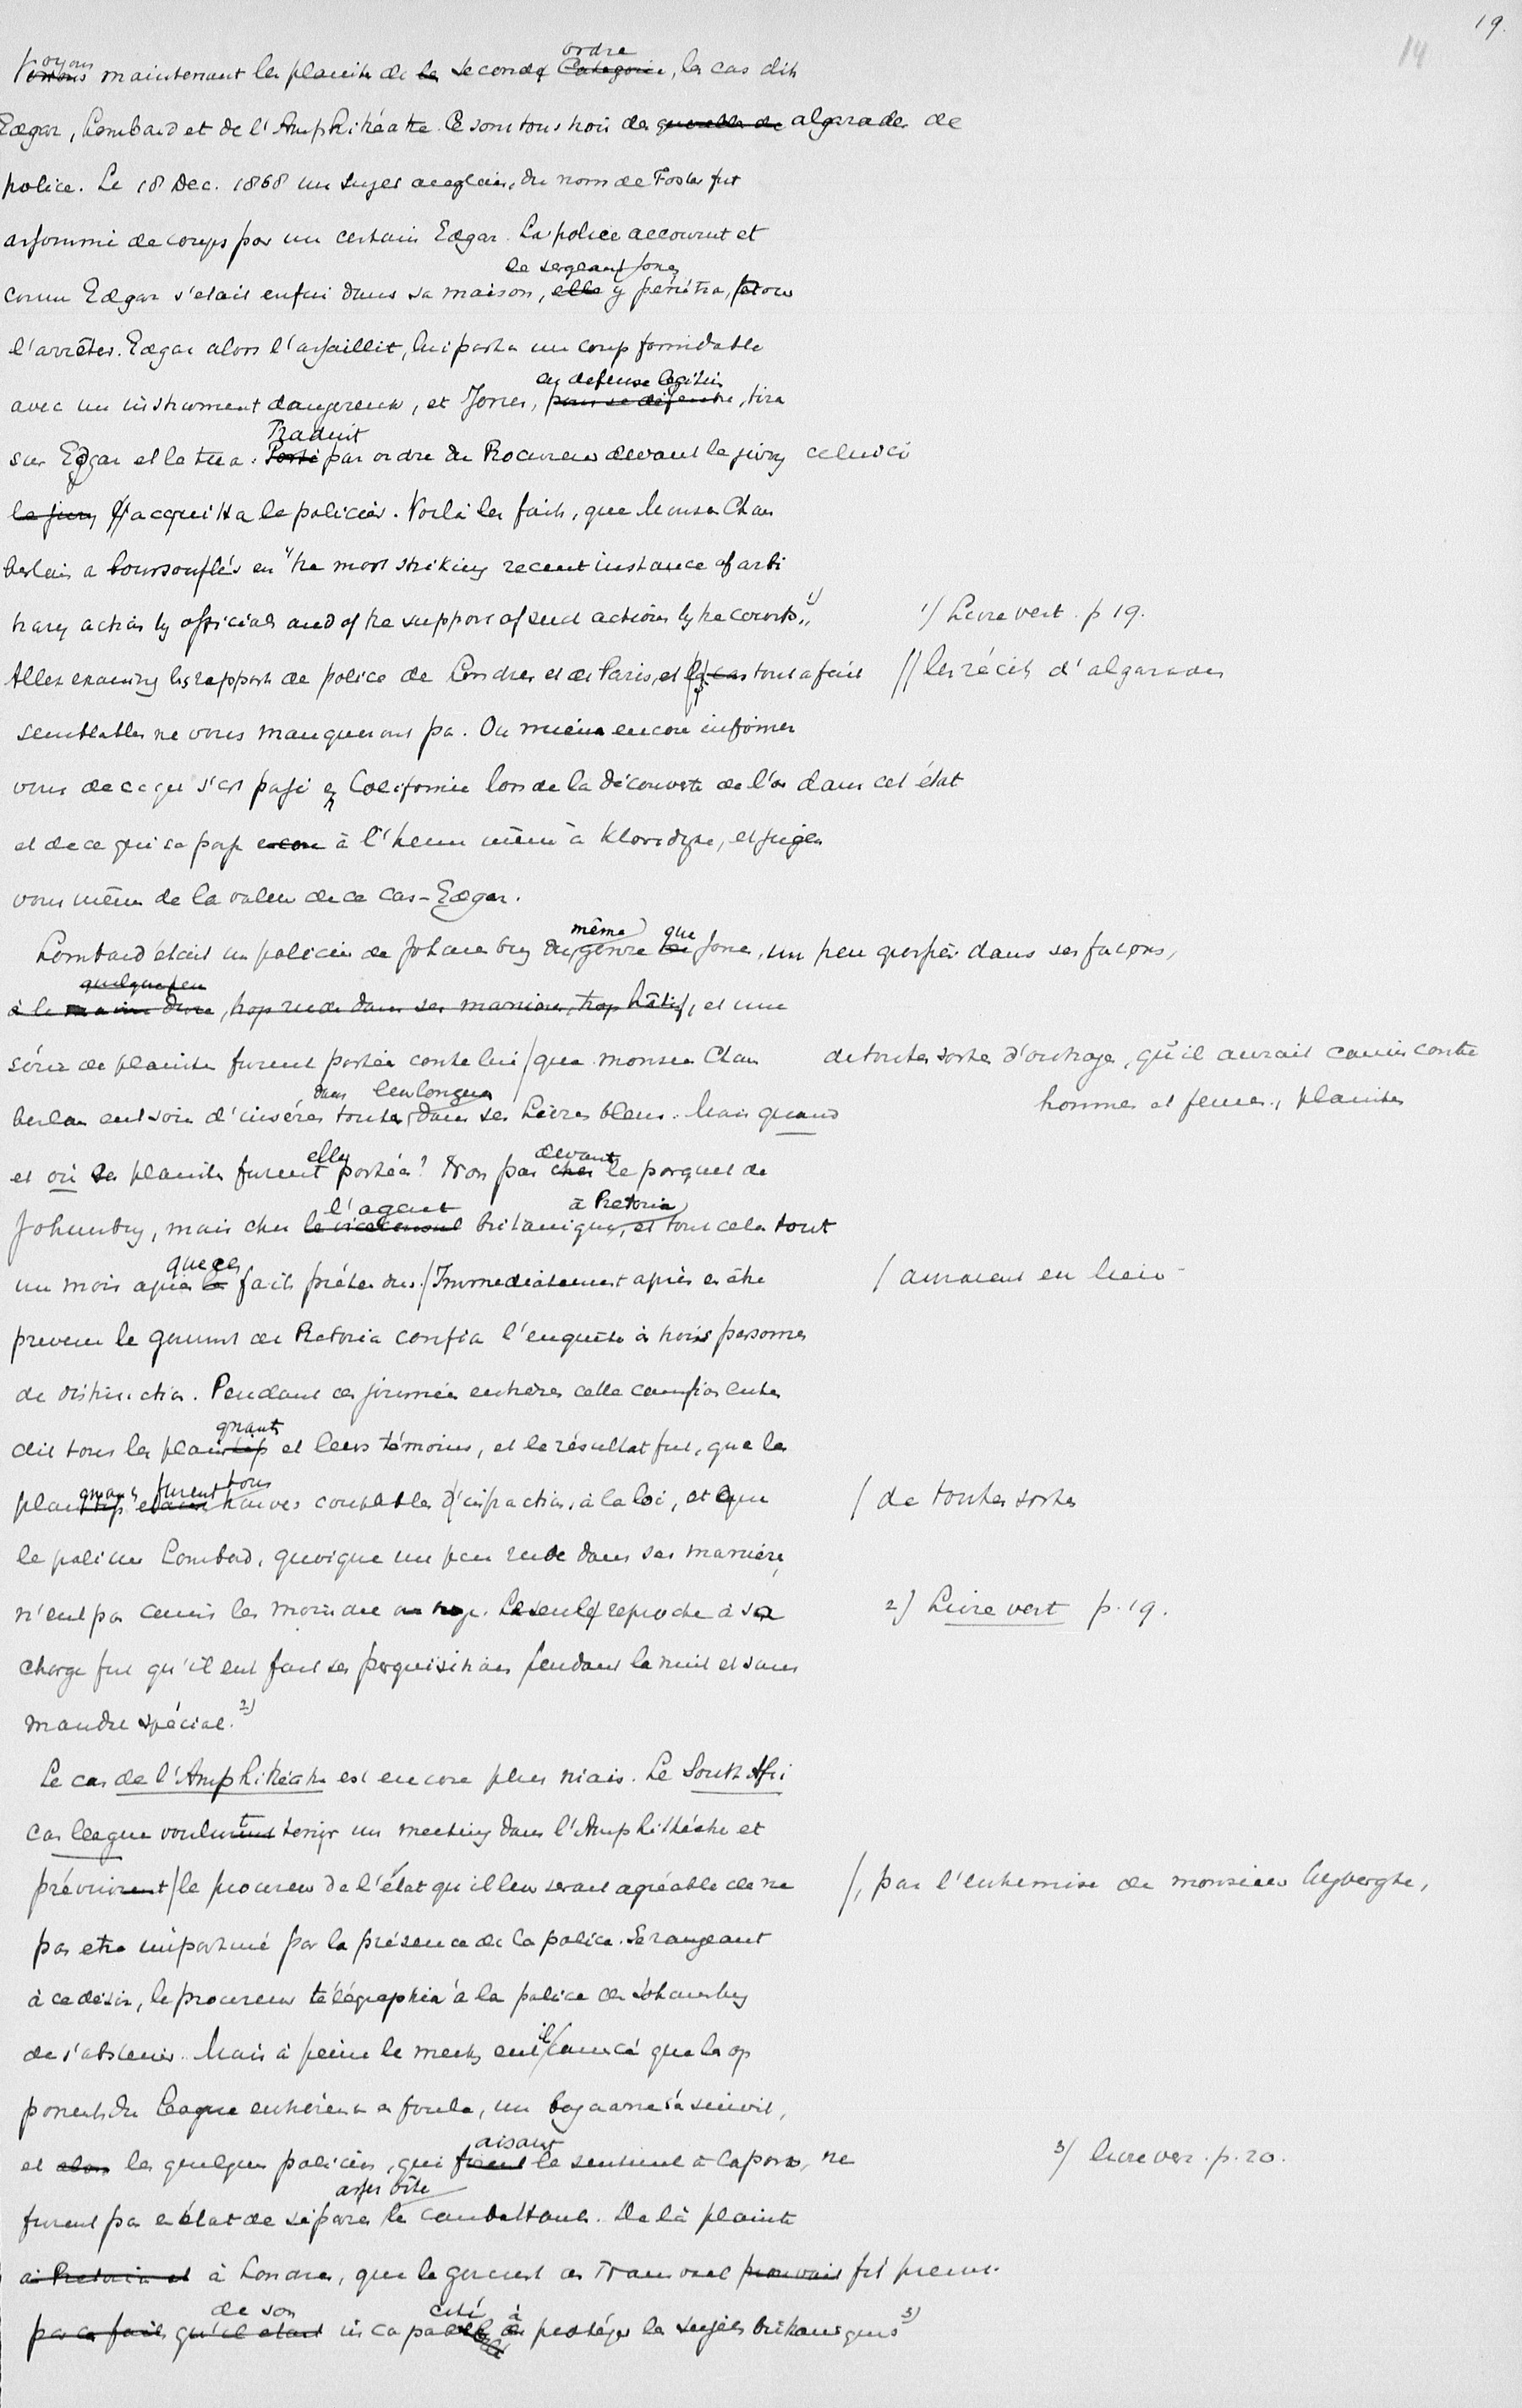 19.
14
Voyons maintenant les plaintes de le second ordre Categorie, les cas dits
Edgar, Lombard et de l'Amphitéatre. Ce sont tous trois des querelles de algarades de
police. Le 18 Dec. 1868 un sujet anglais, du nom de Foster fut
assommé de coups par un certain Edgar. La police accourut et
comme Edgar s'etait enfui dans sa maison, elle le sergeant Jones y pénétra, pour
l'arrêter. Edgar alors l'assaillit, lui porta un coup formidable
avec un instrument dangereux, et Jones, pour se défendre en defense legitime, tira
sur Edgar et le tua. Porté Traduit par ordre du Procureur devant le jury celui ci
le jury acquitta le policier. Voilà les faits, que Monsr Cham
berlain a boursouflés en "the most striking recent instance of arbi
trary action by officials and of the support of such actions by the courts". 1)
1) Livre vert. p 19.
Allez examiner les rapports de police de Londres et de Paris, et cas tout a fait
// les récits d'algarades
semblables ne vous manqueront pas. Ou mieux encore informez
vous de ce qui s'est passé en Californie lors de la découverte de l'or dans cet état
et de ce qui se passe encore à l'heure même à Klondyke, et jugez
vous même de la valeur de ce cas-Edgar.
Lombard était un policier de Johannesburg du même genre que de Jones, un peu grossier dans ses façons,
quelque peu
à la main dure, trop rude dans ses manières, trop hâtif, et une
série de plaintes furent portées contre lui / que monsieur Cham
de toutes sortes d'outrages, qu'il aurait commis contre
hommes et femmes, plaintes
berlain eut soin d'insérer toutes dans leur longueur dans ses Livres bleus. Mais quand
et où ses plaintes furent elles portées? Non pas chez devant le parquet de
Johannesburg, mais chez le vice consul l'agent britannique, à Pretoria et tout cela tout
un mois après le que ces faits prétendus / Immediatement après en être
/ auraient eu lieu
prevenu le gouvernt de Pretoria confia l'enquête à trois personnes
de distinction. Pendant des journées entières cette commission enten
dit tous les plaignants et leurs témoins, et le résultat fut, que les
plaignants furent tous trouvés coupables d'infractions à la loi, et que
/ de toutes sortes
le policier Lombard, quoique un peu rude dans ses manières,
n'eut pas commis les moindre outrage. Le seul reproche à sa
2) Livre vert p. 19.
charge fut qu'il eut fait ses perquisitions pendant la nuit et sans
mandat spécial. 2)
Le cas de l'Amphitéatre est encore plus niais. Le South Afri
can league voulut tenir un meeting dans l'Amphithéatre et
prévinrent / le procureur de l'état qu'il leur serait agréable de ne
/, par l'entremise de monsieur Wyberghe,
pas etre importuné par la présence de la police. Se rangeant
à ce désir, le procureur télégraphia à la police de Johannesburg
de s'abstenir. Mais à peine le meeting eut il commencé que les op
ponents du League entrèrent en foule, un bagarre s'ensuivit,
et alors les quelques policiers, qui faisant la sentinel à la porte, ne
3) livre ver. p. 20.
furent pas en état de séparer assez vite les combattants. De là plainte
à Pretoria et à Londres, que le gouvernt du Transvaal prouvait fit preuve
par ce fait qu'il etait de son incapacité à de protéger les sujets britanniques 3)